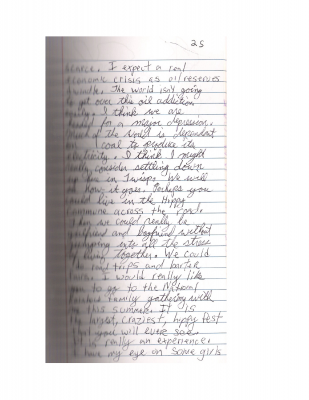 25
scarce. I expect a real
economic crisis as oil reserves
dwindle. The world isn't going
to get over this oil addiction
I think we are
ready for a major depression.
of the world is dependent
coal to produce its
electricity. I think I might
consider settling down
live in Twisp. We will
see how it goes. Perhaps you
could live in the Hippy
commune across the
we could really be
girlfriend and boyfriend without
jumping into all the stress
of living together. We could
trips and
I would really like
you to go to the National
Rainbow Family gathering with
me this summer. It is
the largest, craziest, hippy fest
that you will ever see.
It is really an experience.
I have my eye on some girls